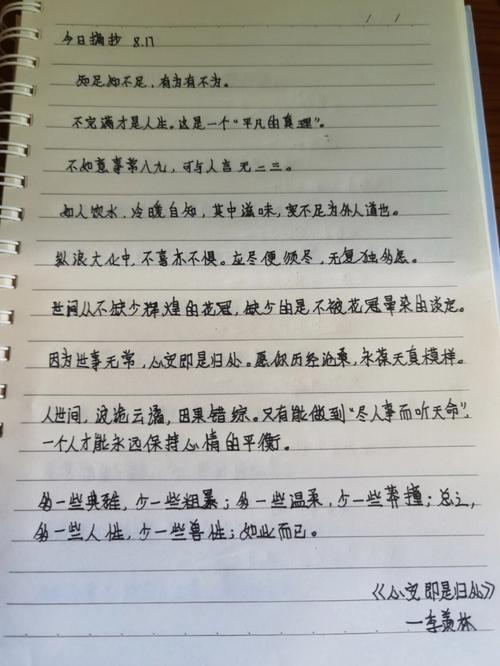 今日摘抄 8.17
知足知不足,有为有不为。
不完满才是人生。这是一个“平凡的真理”。
不如意事常八九,可与人言无二三。
如人饮水,冷暖自知,其中滋味,实不足为外人道也。
纵浪大化中,不喜亦不惧。应尽便须尽,无复独多虑。
世间从不缺少辉煌的花冠,缺少的是不被花冠晕染的淡定。
因为世事无常,心安即是归处。愿你历经沧桑,永葆天真模样。
人世间,波诡云谲,因果错综。只有能做到“尽人事而听天命”,
一个人才能永远保持心情的平衡。
多一些典雅,少一些粗暴;多一些温柔,少一些莽撞;总之,
多一些人性,少一些兽性;如此而已。
《心安即是归处》
—季羡林